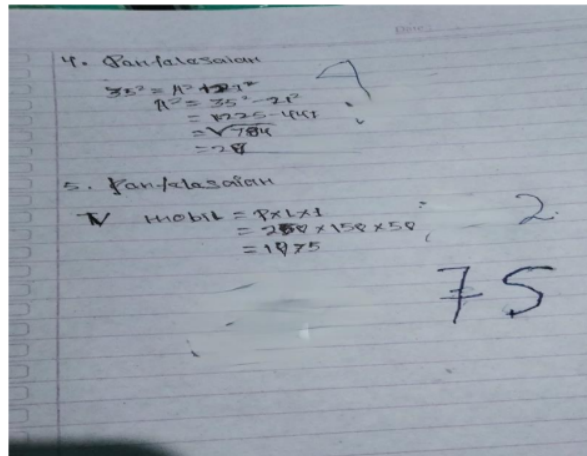 4. Panfalesaian
35² = A² + 21²
A² = 35² - 21²
= 1225 - 441
= √784
= 28
5. Panfelesaian
V mobil = P x L x t
= 250 x 150 x 50
= 1875
2
75